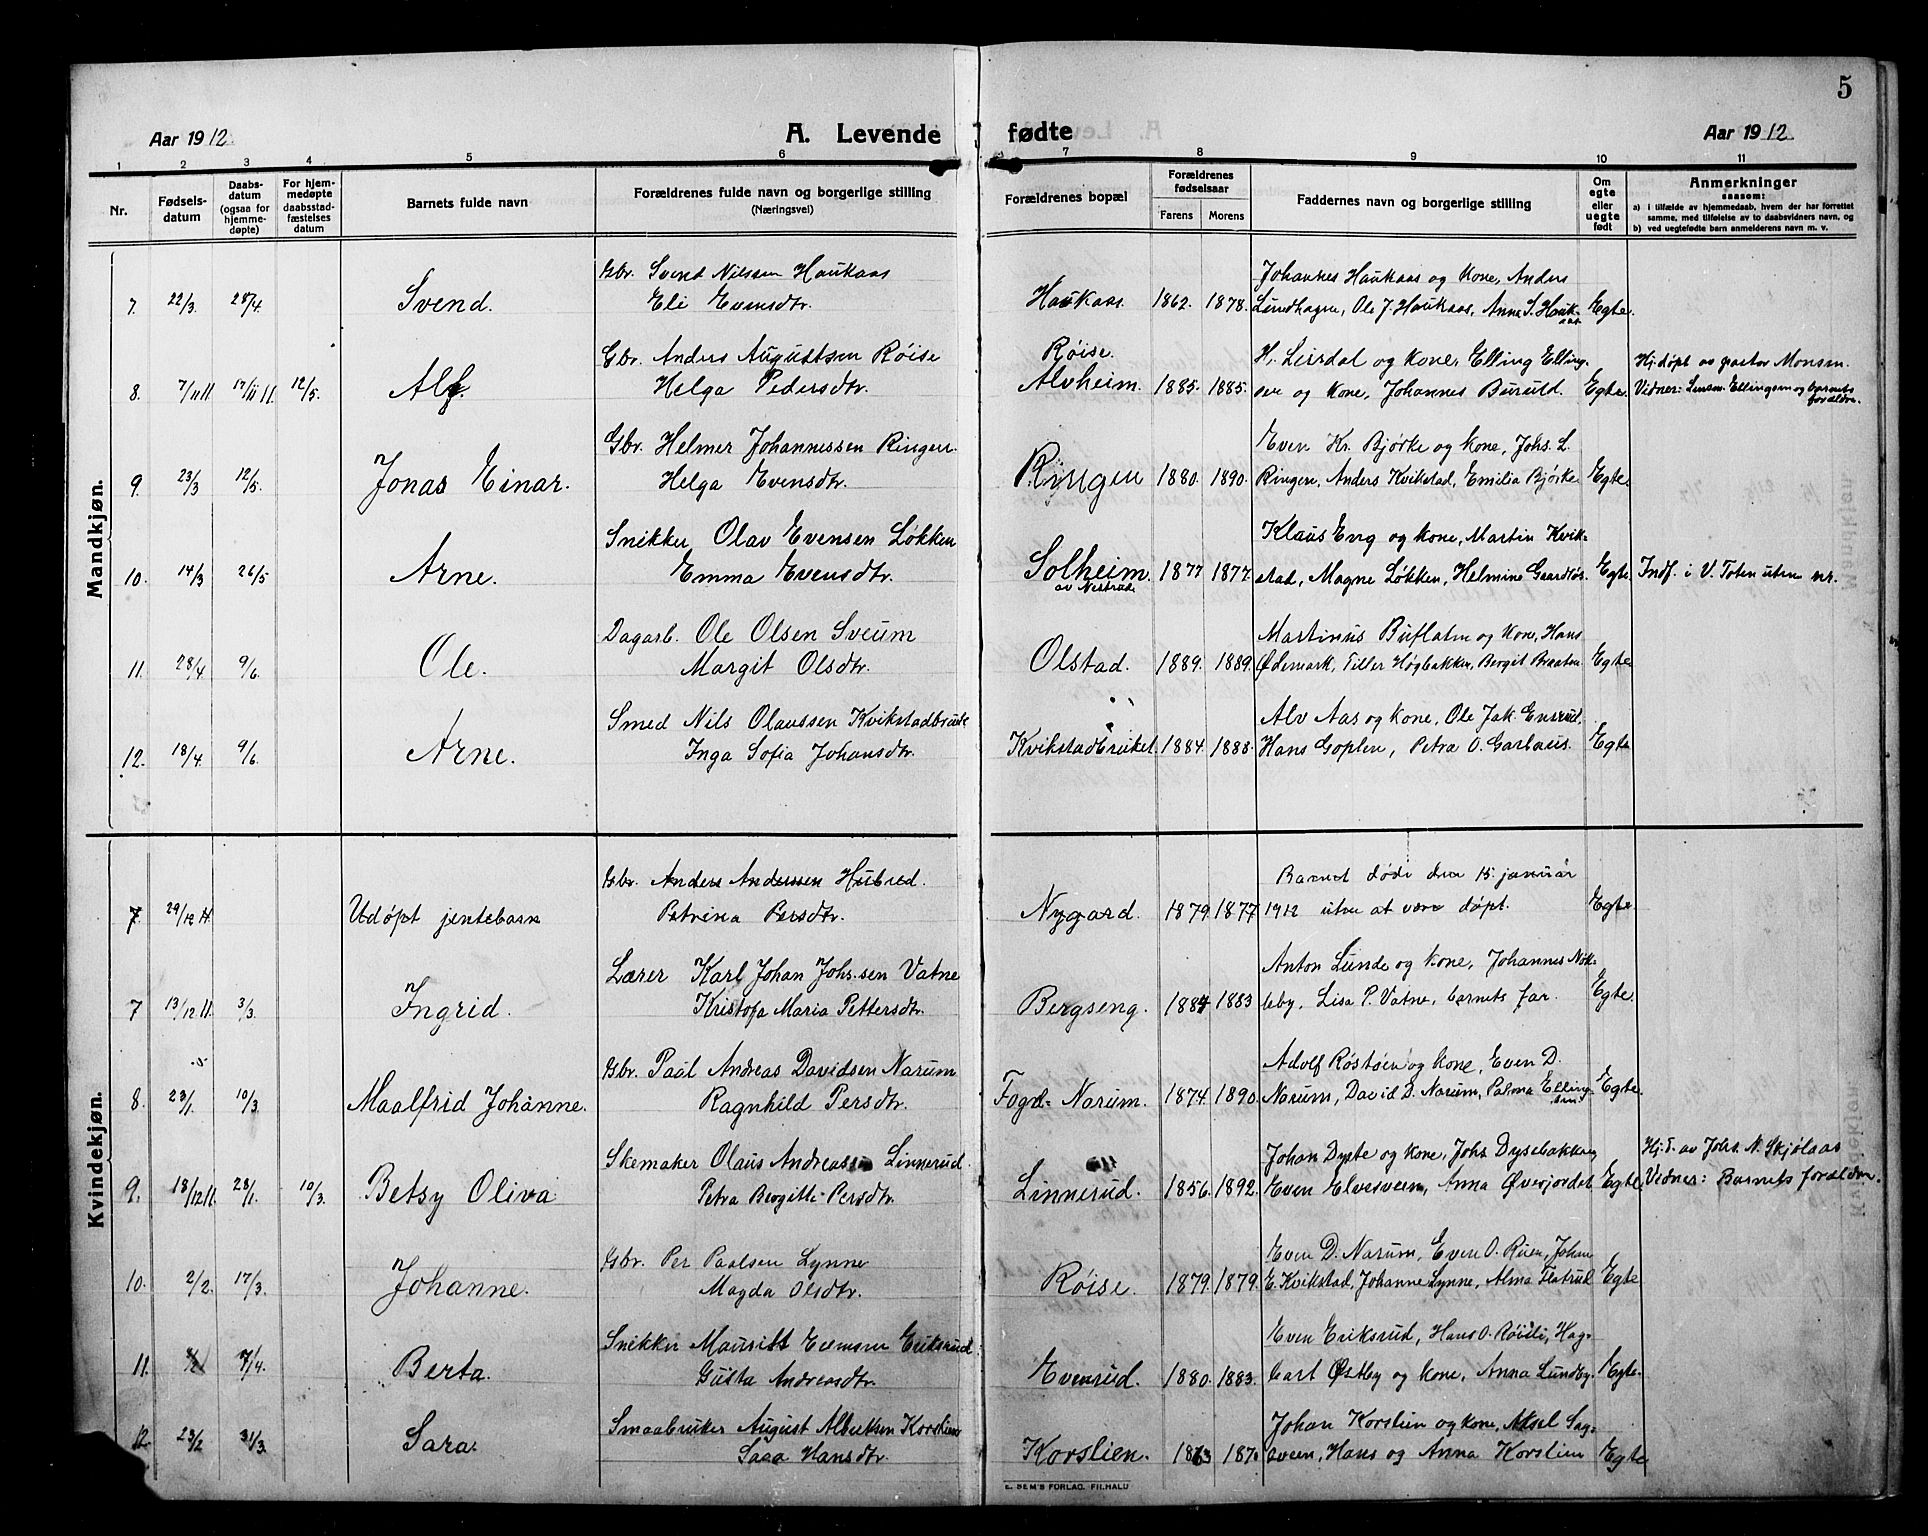 5
Aar 1912.
A. Levende fødte
Aar 1912.
1 2 3 4 5 6 7 8 9 10 11
Nr.
Fødsels-
datum
Daabs-
datum
(ogsaa for
hjemme-
døpte)
For hjem-
medøpte
daabsstad-
fæstelses
datum
Barnets fulde navn
Forældrenes fulde navn og borgerlige stilling
(Næringsvei)
Forældrenes bopæl
Forældrenes
fødselsaar
Farens Morens
Faddernes navn og borgerlige stilling
Om
egte
eller
uegte
født
Anmerkninger
saasom:
a) i tilfælde av hjemmedaab, hvem der har forrettet
samme, med tilføielse av to daabsvidners navn, og
b) ved uegtefødte barn anmelderens navn m. v.
Mandkjøn.
Gbr. Svend Nilssen Haukaas
Johannes Haukaas og kone, Anders
7. 22/3. 28/4. Svend. Eli Evensdtr. Haukaas. 1862. 1878. Lundhagen, Ole J. Haukaas, Anne S. Hauk- Egte.
aas
Gbr. Anders Augustsen Røise
Røise.
H. Leirdal og kone, Elling Elling-
Hj.døpt av pastor Monsen.
8. 7/11 11. 17/11 11. 12/5. Alf. Helga Pedersdtr. Alvheim. 1885. 1885. sen og kone, Johannes Burud. Egte. Vidner: Ellingsen og barnets
forældre.
Gbr. Helmer Johannessen Ringen.
Even Kr. Bjørke og kone, Johs. L.
9. 23/3 12/5. Jonas Einar. Helga Evensdtr. Ringen 1880. 1890. Ringen, Anders Kvikstad, Emilia Bjørke. Egte
Snikker Olav Evensen Løkken
Klaus Evg og kone, Martin Kvik-
10. 14/3 26/5 Arne. Emma Evensdtr. Solheim. 1877 1877. stad, Magne Løkken, Helmine Gaardløs. Egte. Indf. i V. Toten uten nr.
av Nestrude
Dagarb. Ole Olsen Sveum
Martinus Buflaten og kone, Hans
11. 28/4 9/6. Ole. Margit Olsdtr. Olstad. 1889. 1889. Ødemark, Tiller Høgbakken, Bergit Braaten Egte
Smed Nils Olaussen Kvikstadbruke
Alv Aas og kone, Ole Jak. Ensrud,
12. 18/4. 9/6. Arne. Inga Sofia Johansdtr. Kvikstadbruket. 1884. 1888. Hans Goplen, Petra O. Garlaus. Egte
Kvindekjøn.
Gbr. Anders Anderssen Hubred.
Barnet døde den 15. januar
7. 29/12 11 Udøpt jentebarn Petrina Persdtr. Nygard. 1879. 1877 1912 uten at være døpt. Egte.
Lærer Karl Johan Johs.sen Vatne
Anton Lunde og kone, Johannes Nøk-
7 13/12 11. 3/3. Ingrid. Kristofa Maria Pettersdtr. Bergseng. 1884 1883 leby, Lisa P. Vatne, barnets far. Egte.
Gbr. Paal Andreas Davidsen Narum
Adolf Røstøen og kone, Even D.
8. 23/1. 10/3. Maalfrid Johanne. Ragnhild Persdtr. Fogd-Narum. 1874. 1890. Narum, David D. Narum, Palma Elling- Egte.
sen
Skemaker Olaus Andreas Linnerud.
Johan Dyste og kone, Johs. Dysebakken
Hj.d. av Johs. N. Skjølaas
9. 18/12 11. 28/1. 10/3. Betsy Oliva Petra Bergitte Persdtr. Linnerud. 1856. 1892. Even Elvesveen, Anna Øverjordet Egte. Vidner: Barnets forældre.
Gbr. Per Paalsen Lynne
Even D. Narum, Even O. Ruen, Johan
10. 2/2. 17/3. Johanne. Magda Olsdtr. Røise. 1879. 1879. E. Kvikstad, Johanne Lynne, Alma Flatrud Egte
Snikker Mauritt Evensen Eriksrud.
Even Eriksrud, Hans O. Røisli, Hag-
11. 7/4. Berta. Gusta Andreasdtr. Evensrud. 1880. 1883. bart Østby og kone, Anna Lundby. Egte.
Smaabruker August Albertsen Korslien
Johan Korslien og kone, Aksel Sag-
12. 23/2 31/3. Sara. Saea Hansdtr. Korslien. 1863 1870 sveen, Hans og Anna Korslien Egte
E. SEM'S FORLAG. FR.HALD